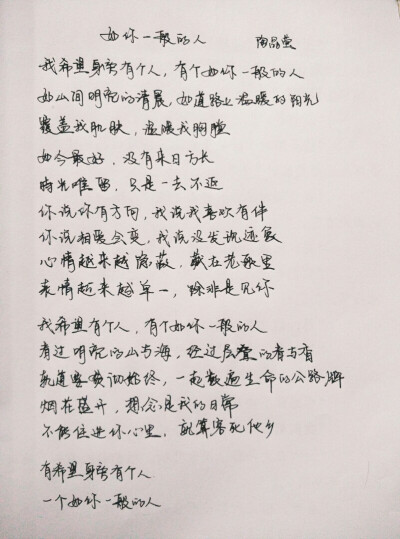 如你一般的人 陶晶莹
我希望身旁有个人，有个如你一般的人
如山间明亮的清晨，如道路上温暖的阳光
覆盖我肌肤，温暖我胸膛
如今最好，没有来日方长
时光难留，只是一去不返
你说你有方向，我说我喜欢有伴
你说相爱会变，我说没发现迹象
心情越来越隐蔽，藏在老歌里
表情越来越单一，除非是见你
我希望有个人，有个如你一般的人
看过明亮的山与海，经过层叠的春与
就道寒暄的始终，一起数遍生命的公路牌
烟花盛开，想念是我的日常
不能住进你心里，就算客死他乡
有希望身旁有个人
一个如你一般的人